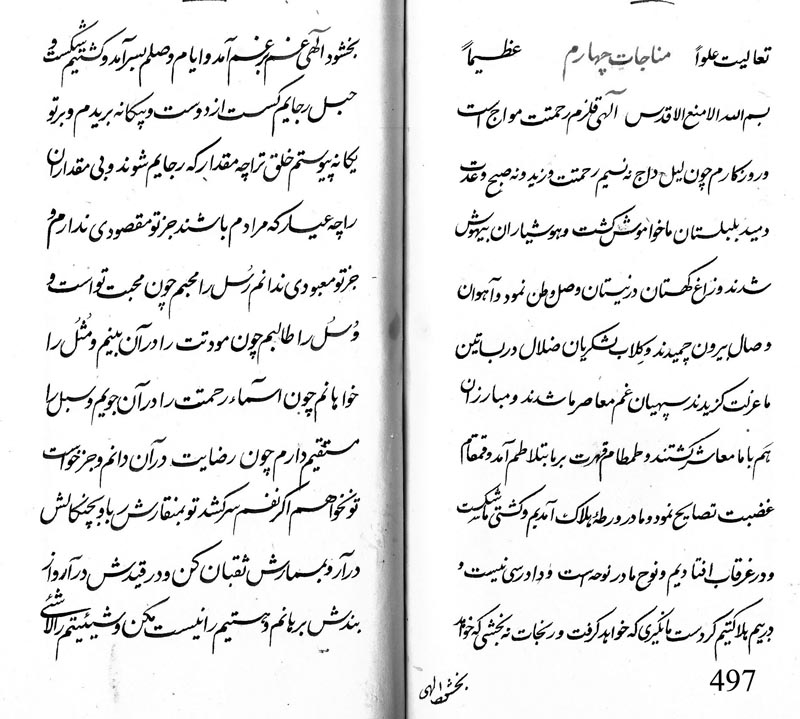 تعالیت علواً مناجات چهارم عظیماً
بسم الله الامنع الاقدس الهی قلزم رحمتت مواج است
و روزگارم چون لیل داج نه نسیم رحمتت وزید و نه صبح وعدت
دمید بلبلستان ما خواموش گشت و هوشیاران بیهوش
شدند و زاغ کهستان در نیستان وصل وطن نمود و آهوان
وصال بیرون چمیدند و کلاب لشکریان ضلال در بساتین
ما عزلت گزیدند سپهیان غم معاصر ما شدند و مبارزان
هم با ما معاشر گشتند و طمطام قهرت بر ما بتلاطم آمد و قمقام
غضبت تصایح نمود و ما در ورطهٔ هلاک آمدیم و کشتی ما شکست
و در غرقاب افتادیم و نوح ما در نوحه است و دادرسی نیست و
در یم هلاکتیم گر دست ما نگیری که خواهد گرفت و ر نجات نه بخشی که خواهد
بخشود الهی
497
بخشود الهی غمم بر غم آمد و ایام وصلم بسر آمد و کشتیم شکست و
حبل رجایم گسست از دوست و بیگانه بریدم و بر تو
یگانه پیوستم خلق تو را چه مقدار که رجایم شوند و بی مقداران
را چه عیار که مرادم باشند جز تو مقصودی ندارم و
جز تو معبودی ندانم رسل را محبم چون محبت تو است و
وسل را طالبم چون مودتت را در آن بینم و مثل را
خواهانم چون اسماء رحمتت را در آن جویم و سبل را
مستقیم دارم چون رضایت در آن دانم و جز خواست
تو نخواهم اگر نفسم سر کشد تو بمنقارش ربا و بچنگالش
در آر و بسمارش ثقبان کن و در قیدش در آر و از
بندش برهانم و هستیم را نیست مکن و شیئیتم را لاشئی